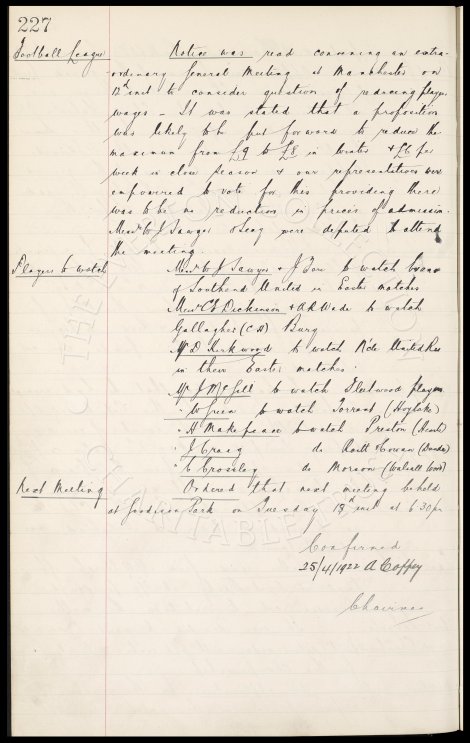 227
Football League Notice was read concerning an extra-
ordinary General Meeting at Manchester on
12th inst to consider question of reducing players
wages - It was stated that a proposition
was likely to be put forward to reduce the
maximum from £9 to £8 in winter & £6 per
week in close season & our representatives were
empowered to vote for this providing there
was to be no reduction in prices of admission.
Messrs W J Sawyer & were deputed to attend
the meeting.
Players to watch Messrs W J Sawyer & J to watch
of Southend United in Easter matches
Messrs C S Dickinson & A R Wade to watch
Gallagher (C H) Bury
Mr D Kirkwood to watch R'dle United
in their Easter matches.
Mr J McGill to watch Fleetwood players
" W Green to watch Torrant (Hoylake)
" H Makepeace to watch Preston
" J Craig do Raitt & Cowan (Dundee)
" E Crossley do Morson (Walsall Wood)
Next Meeting Ordered that next meeting be held
at Goodison Park on Tuesday 18th inst at 6.30pm
Confirmed
25/4/1922 A Coffey
Chairman
THE
CHARITABLE